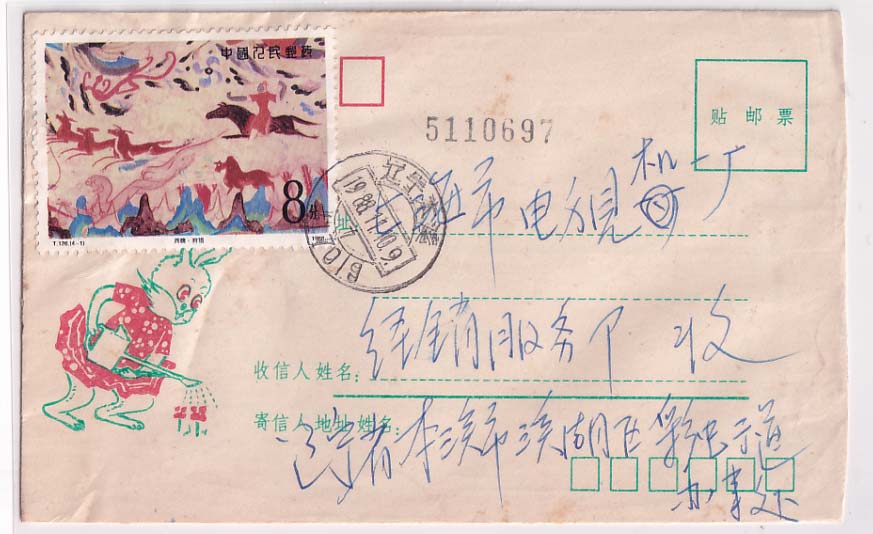 中国人民邮政
8分
T.126.(4-1)
西魏·狩猎
5110697
贴邮票
辽宁本溪
1988.11.10.9
址
上海市电视机一厂
收信人姓名:
经销服务部 收
寄信人地址姓名:
辽宁省本溪市溪湖区彩屯
办事处